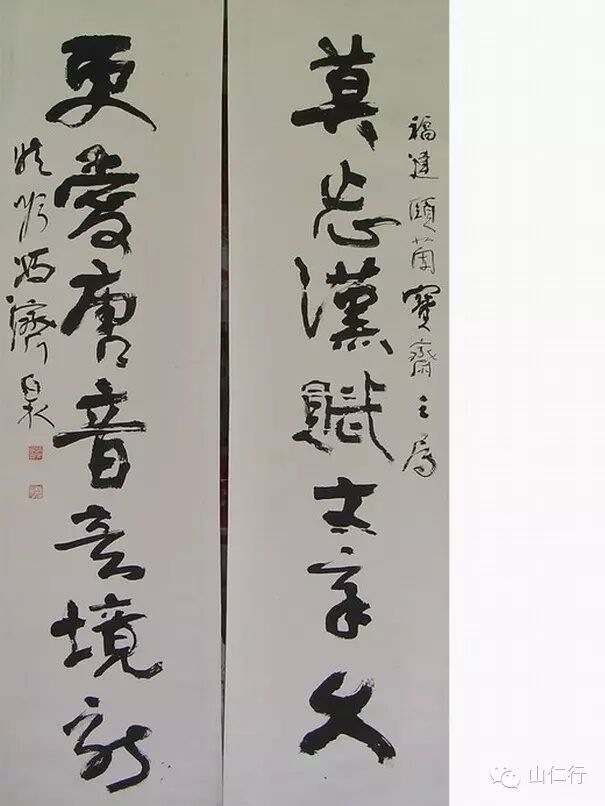 福建頤蘭寶齋之屬
莫忘漢賦文章久
更愛唐音意境新
馮濟泉
山仁行